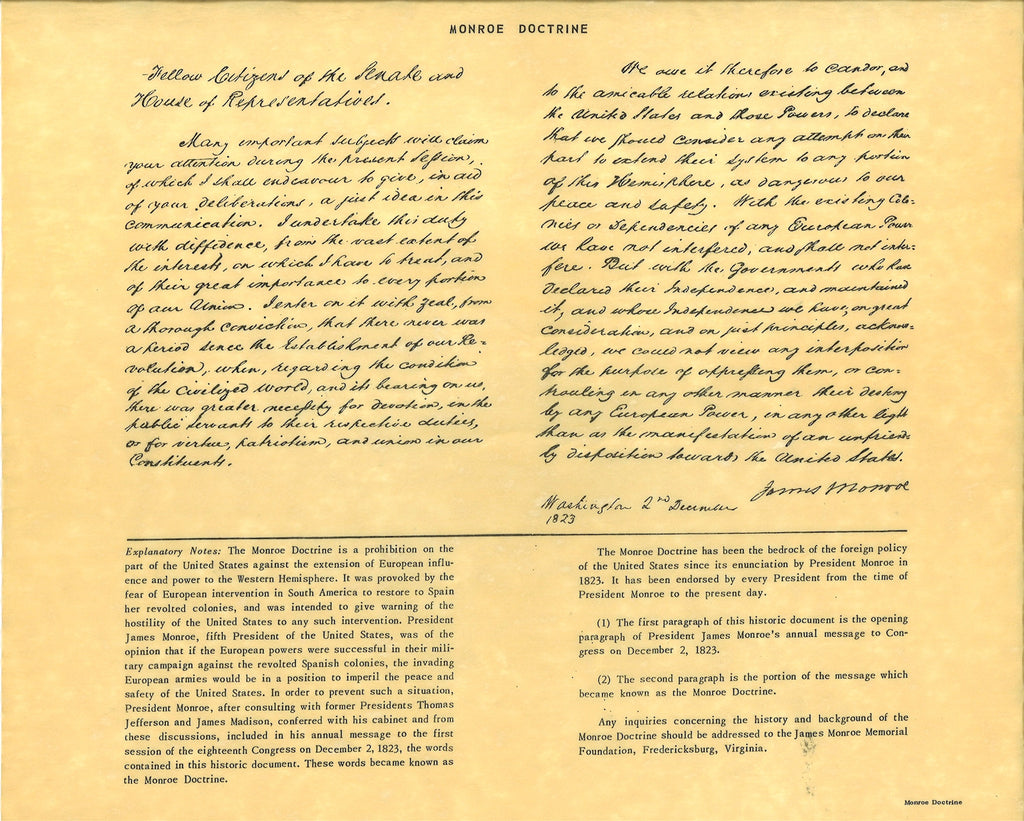 MONROE DOCTRINE
Fellow Citizens of the Senate and
House of Representatives.
Many important subjects will claim
your attention during the present Session,
of which I shall endeavour to give, in aid
of your deliberations, a just idea in this
communication. I undertake this duty
with diffidence, from the vast extent of
the interests, on which I have to treat, and
of their great importance to every portion
of our Union. I enter on it with zeal, from
a thorough conviction, that there never was
a period since the Establishment of our Re-
volution, when, regarding the condition
of the Civilized World, and its bearing on us,
there was greater necessity for devotion, in the
public servants to their respective duties,
or for virtue, patriotism, and union in our
Constituents.
We owe it therefore to candor, and
to the amicable relations existing between
the United States and those Powers, to declare
that we should consider any attempt on their
part to extend their system to any portion
of this Hemisphere, as dangerous to our
peace and safety. With the existing Colo-
nies or Dependencies of any European Power
we have not interfered, and shall not inter-
fere. But with the Governments who have
declared their Independence, and maintained
it, and whose Independence we have, on great
consideration, and on just principles, acknow-
ledged, we could not view any interposition
for the purpose of oppressing them, or con-
trouling in any other manner their destiny
by any European Power, in any other light
than as the manifestation of an unfriend-
ly disposition towards the United States.
James Monroe
Washington 2nd December
1823
Explanatory Notes: The Monroe Doctrine is a prohibition on the
part of the United States against the extension of European influ-
ence and power to the Western Hemisphere. It was provoked by the
fear of European intervention in South America to restore to Spain
her revolted colonies, and was intended to give warning of the
hostility of the United States to any such intervention. President
James Monroe, fifth President of the United States, was of the
opinion that if the European powers were successful in their mili-
tary campaign against the revolted Spanish colonies, the invading
European armies would be in a position to imperil the peace and
safety of the United States. In order to prevent such a situation,
President Monroe, after consulting with former Presidents Thomas
Jefferson and James Madison, conferred with his cabinet and from
these discussions, included in his annual message to the first
session of the eighteenth Congress on December 2, 1823, the words
contained in this historic document. These words became known as
the Monroe Doctrine.
The Monroe Doctrine has been the bedrock of the foreign policy
of the United States since its enunciation by President Monroe in
1823. It has been endorsed by every President from the time of
President Monroe to the present day.
(1) The first paragraph of this historic document is the opening
paragraph of President James Monroe's annual message to Con-
gress on December 2, 1823.
(2) The second paragraph is the portion of the message which
became known as the Monroe Doctrine.
Any inquiries concerning the history and background of the
Monroe Doctrine should be addressed to the James Monroe Memorial
Foundation, Fredericksburg, Virginia.
Monroe Doctrine